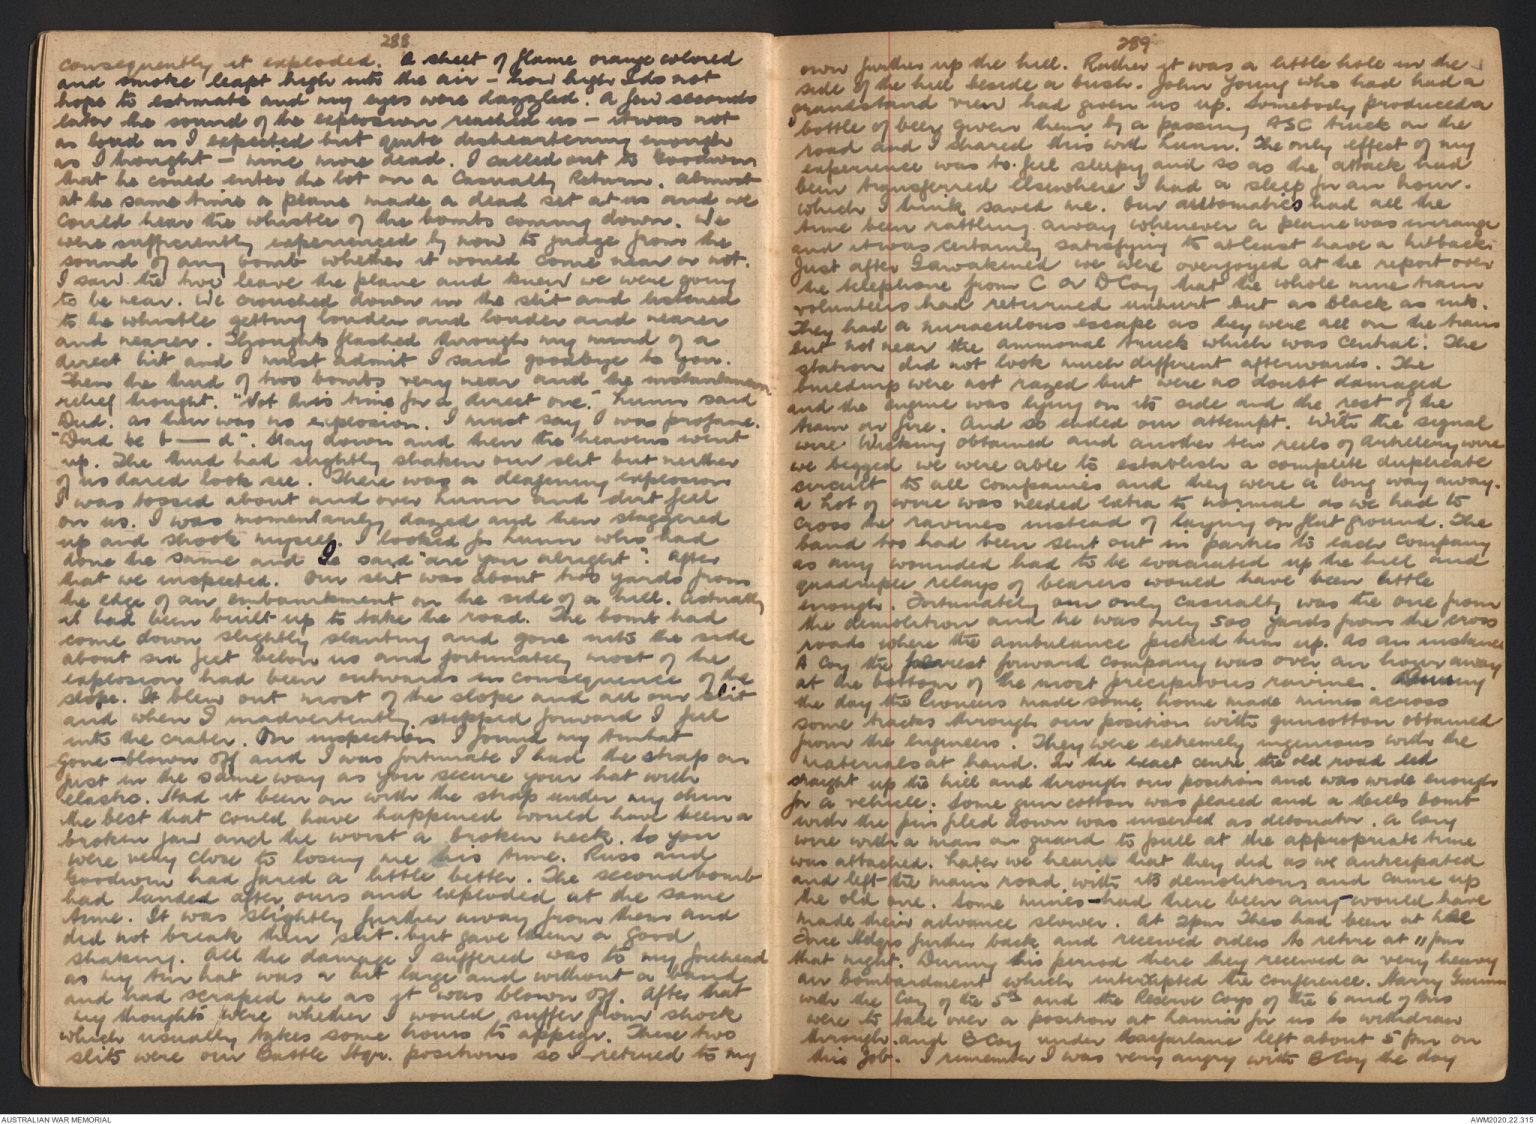 288
consequently it exploded. A sheet of flame orange colored
and smoke leapt high into the air - how high I do not
hope to estimate and my eyes were dazzled. A few seconds
later the sound of the explosion reached us - it was not
as loud as I expected but quite disheartening enough
as I thought - nine more dead. I called out to Goodwin
that he could enter the lot on a Casualty Return. Almost
at the same time a plane made a dead set at us and we
could hear the whistle of the bombs coming down. We
were sufficiently experienced by now to judge from the
sound of any bomb whether it would come near or not.
I saw the two leave the plane and knew we were going
to be near. We crouched down in the slit and listened
to the whistle getting louder and louder and nearer
and nearer. Thoughts flashed through my mind of a
direct hit and I must admit I said goodbye to you.
Then the thud of two bombs very near and the instantaneous
relief thought. "Not this time for a direct one." Lunn said
Dud. as there was no explosion. I must say I was profane.
"Dud be b - d". Stay down and then the heavens went
up. The thud had slightly shaken our slit but neither
of us dared look see. There was a deafening explosion
I was tossed about and over Lunn and dirt fell
on us. I was momentarily dazed and then staggered
up and shook myself. I looked for Lunn who had
done the same and I said "are you alright". After
that we inspected. Our slit was about two yards from
the edge of an embankment on the side of a hill. Actually
it had been built up to take the road. The bomb had
come down slightly slanting and gone into the side
about six feet below us and fortunately most of the
explosion had been outwards in consequence of the
slope. It blew out most of the slope and all our slit
and when I inadvertently stepped forward I fell
into the crater. On inspection I found my tin hat
gone - blown off and I was fortunate I had the strap on
just in the same way as you secure your hat with
elastic. Had it been on with the strap under my chin
the best that could have happened would have been a
broken jaw and the worst a broken neck. So you
were very close to losing me this time. Russ and
Goodwin had fared a little better. The second bomb
had landed after ours and exploded at the same
time. It was slightly further away from them and
did not break their slit but gave them a good
shaking. All the damage I suffered was to my forehead
as my tin hat was a bit large and without a band
and had scraped me as it was blown off. After that
my thoughts were whether I would suffer from shock
which usually takes some hours to appear. These two
slits were our Battle Hqr. positions so I returned to my
289
own further up the hill. Rather it was a little hole in the
side of the hill beside a bush. John Young who had had a
grandstand view had given us up. Somebody produced a
bottle of beer given them by a passing ASC truck on the
road and I shared this with Lunn. The only effect of my
experience was to feel sleepy and so as the attack had
been transferred elsewhere I had a sleep for an hour.
which I think saved me. Our automatics had all the
time been rattling away whenever a plane was in range
and it was certainly satisfying to at least have a hit back.
Just after I awakened we were overjoyed at the report over
the telephone from C or D Coy that the whole nine train
volunteers had returned unhurt but as black as ink.
They had a miraculous escape as they were all on the train
but not near the ammonal truck which was central. The
station did not look much different afterwards. The
buildings were not razed but were no doubt damaged
and the engine was lying on its side and the rest of the
train on fire. And so ended our attempt. With the signal
wire Wicking obtained and another ten reels of Artillery wire
we begged we were able to establish a complete duplicate
circuit to all companies and they were a long way away.
A lot of wire was needed extra to normal as we had to
cross the ravines instead of laying on flat ground. The
band too had been sent out in parties to each Company
as any wounded had to be evacuated up the hill and
quadruple relays of bearers would have been little
enough. Fortunately our only casualty was the one from
the demolition and he was only 500 yards from the cross
roads where the ambulance picked him up. As an instance
A Coy the nearest forward company was over an hour away
at the bottom of the most precipitous ravines. During
the day the Pioneers made some home made mines across
some tracks through our position with guncotton obtained
from the engineers. They were extremely ingenious with the
materials at hand. In the exact centre the old road led
straight up the hill and through our position and was wide enough
for a vehicle. Some gun cotton was placed and a Mills bomb
with the pin filed down was inserted as detonator. A long
wire with a man on guard to pull at the appropriate time
was attached. Later we heard that they did as we anticipated
and left the main road with its demolitions and came up
the old one. Some mines - had there been any - would have
made their advance slower. At 2pm Theo had been at
Force Hdqrs further back and received orders to retire at 11 pm
that night. During this period there they received a very heavy
air bombardment which interrupted the conference. Harry
with the Coy of the 5th and the Reserve Coys of the 6 and 7 Bns
were to take over a position at Lamia for us to withdraw
through. and B Coy under Macfarlane left about 5 pm on
this job. I remember I was very angry with B Coy the day
AUSTRALIAN WAR MEMORIAL
AWM2020.22.315